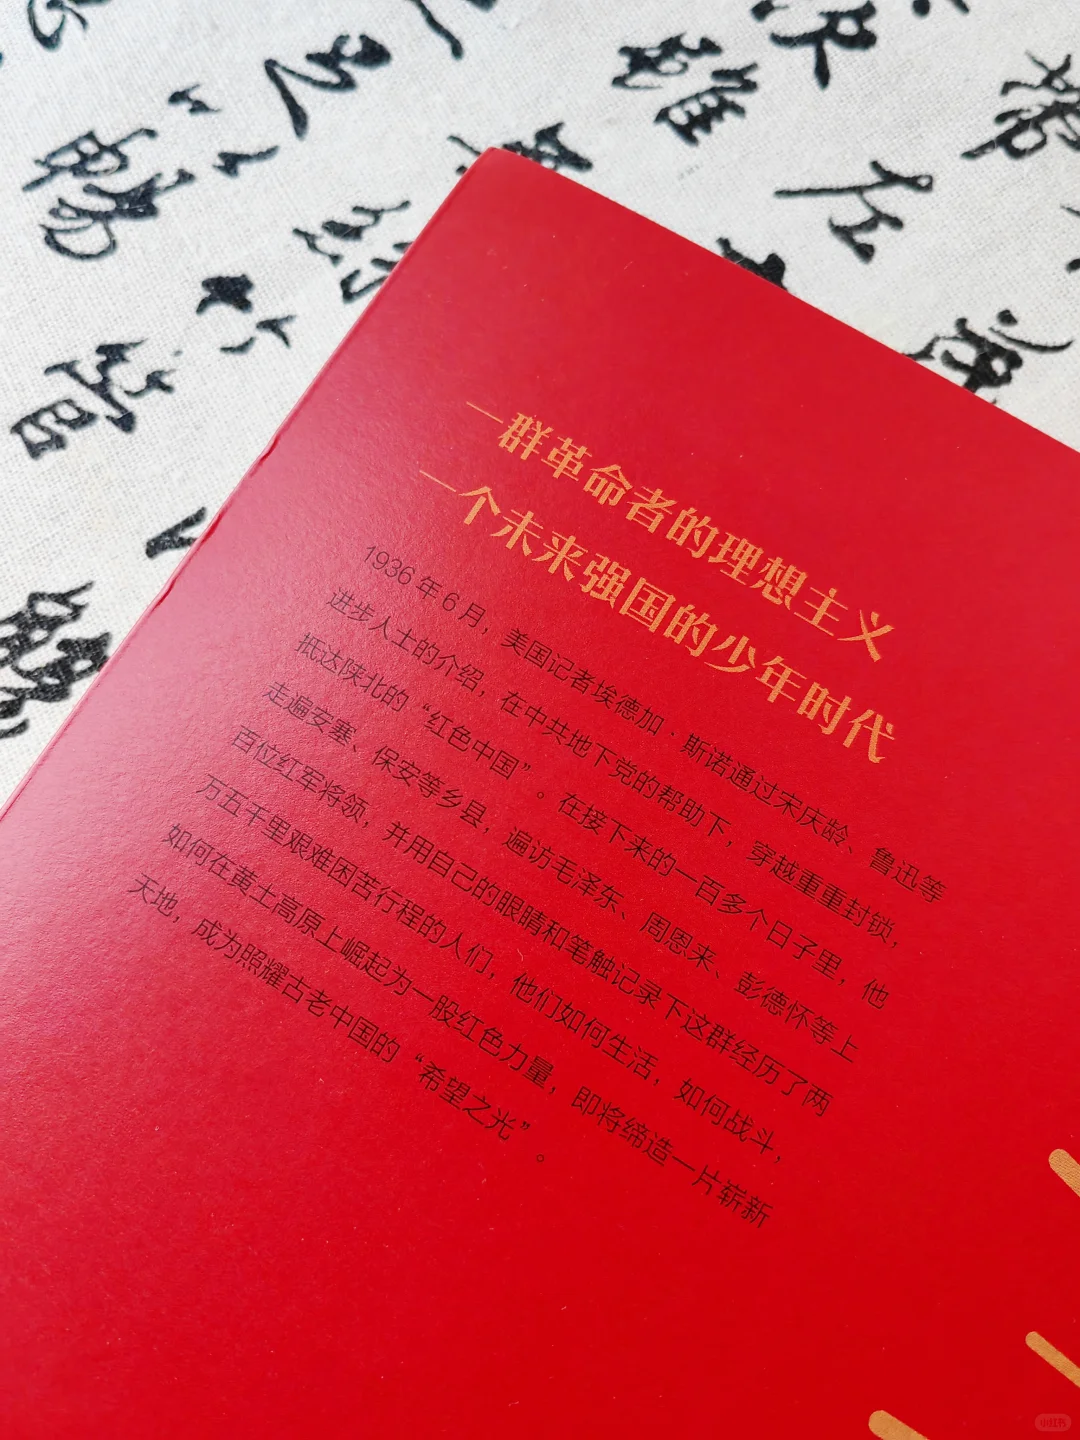 一群革命者的理想主义
一个未来强国的少年时代
1936 年 6 月，美国记者埃德加·斯诺通过宋庆龄、鲁迅等
进步人士的介绍，在中共地下党的帮助下，穿越重重封锁，
抵达陕北的“红色中国”。在接下来的一百多个日子里，他
走遍安塞、保安等乡县，遍访毛泽东、周恩来、彭德怀等上
百位红军将领，并用自己的眼睛和笔触记录下这群经历了两
万五千里艰难困苦行程的人们，他们如何生活，如何战斗，
如何在黄土高原上崛起为一股红色力量，即将缔造一片崭新
天地，成为照耀古老中国的“希望之光”。
小红书